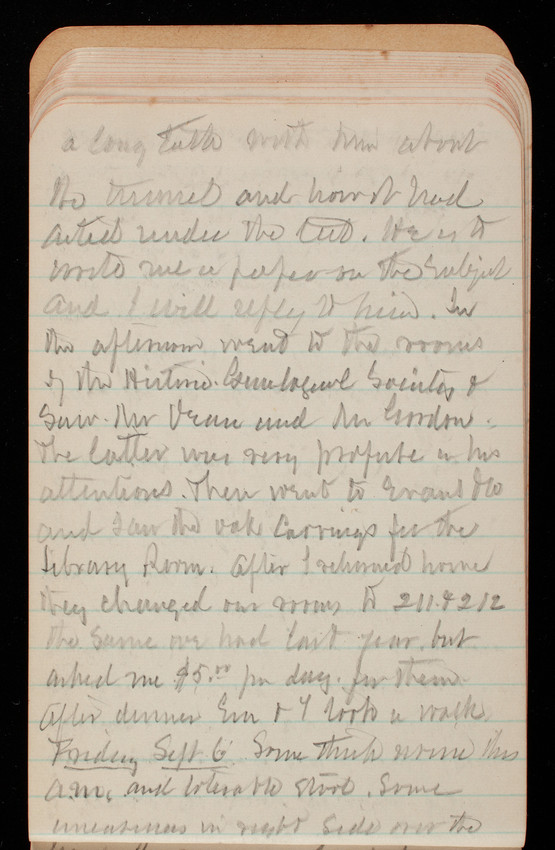 a long talk with him about
the tunnel and how it had
acted under the test. He is to
write me a paper on the Subject
and I will reply to him. In
the afternoon went to the rooms
of the Historic. Genealogical Society &
Saw Mr Dean and Mr Gordon.
The latter was very profuse in his
attentions. Then went to Evans & Co
and saw the oak Carvings for the
library Room. After I returned home
they changed our rooms to 211 & 212
the same we had last year, but
asked me $5.00 per day for them.
After dinner Em & I took a walk.
Friday Sept. 6 Some thick urine this
A.M. and tolerable stool. Some
uneasiness in right side over the